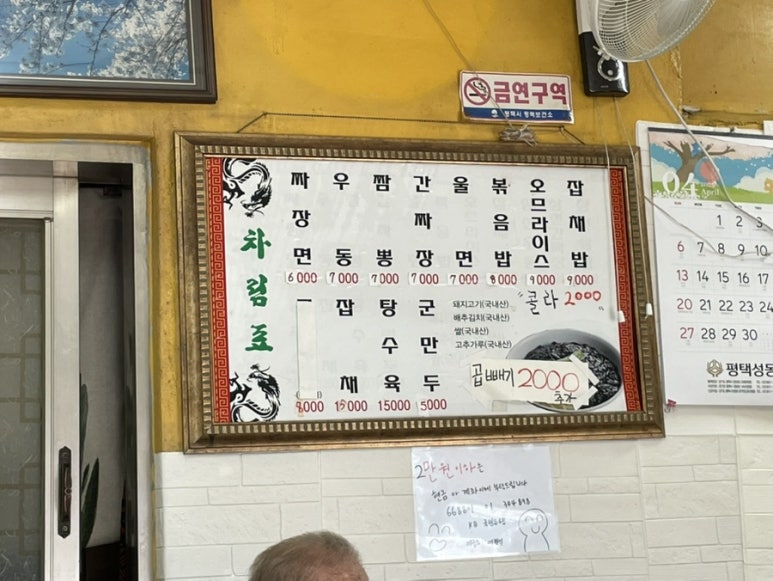 금연구역
평택시 평택보건소
차림표
짜장면 6000
우동 7000
짬뽕 7000
간짜장 7000
울면 7000
볶음밥 8000
오므라이스 9000
잡채밥 9000
"콜라 2000"
8000
잡채 15000
탕수육 15000
군만두 5000
돼지고기(국내산)
배추김치(국내산)
쌀(국내산)
고추가루(국내산)
곱빼기 2000
추가
2만원이하는
현금 아 계좌이체 부탁드립니다
304
KB 국민은행
04
April
1 2 3
6 7 8 9 10
13 14 15 16 17
20 21 22 23 24
27 28 29 30
평택성동